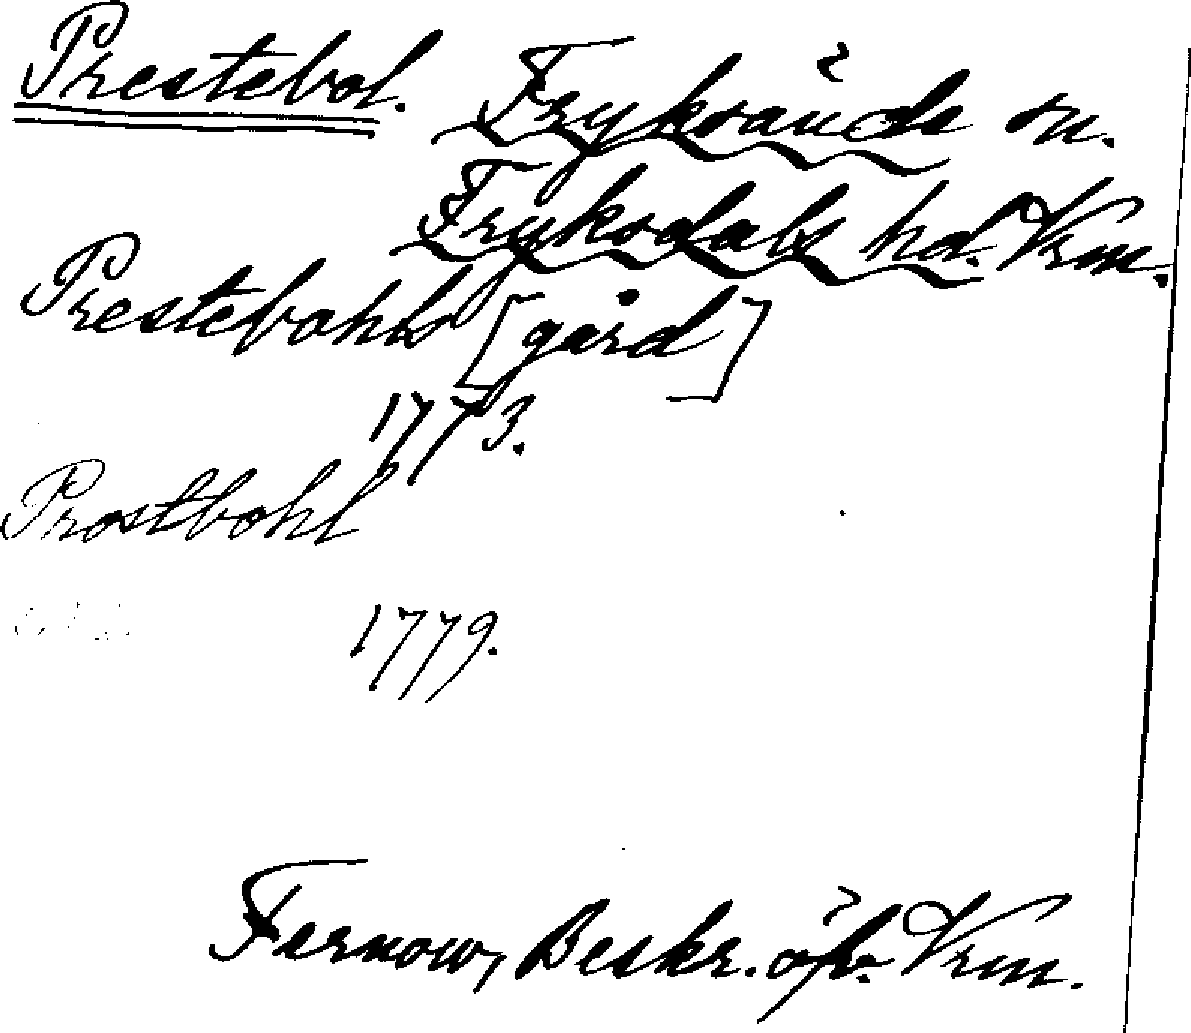 Prestebol. Fryksände sn.
Fryksdals hd. Vrm.
Prestebohls [gård]
1773.
Prostbohl
1779.
Fernow, Beskr. öfv. Vrm.